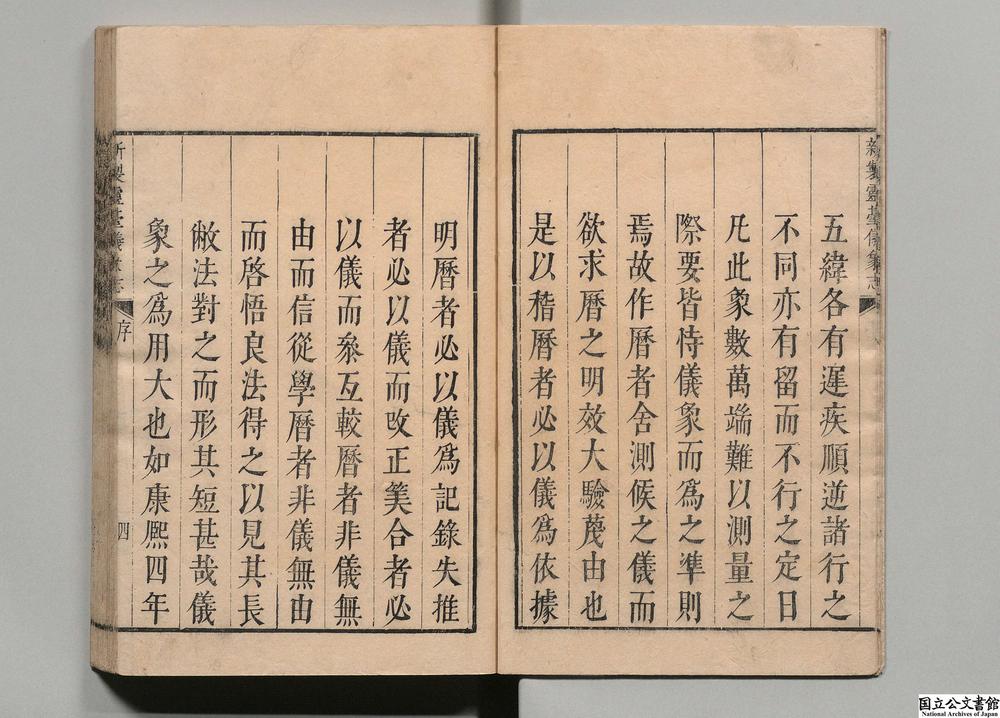 新製靈臺儀象志
五緯各有遲疾順逆諸行之
不同亦有留而不行之定日
凡此象數萬端難以測量之
際要皆恃儀象而為之準則
焉故作曆者舍測候之儀而
欲求曆之明效大驗蔑由也
是以稽曆者必以儀為依據
明曆者必以儀為記錄失推
者必以儀而改正筭合者必
以儀而叅互較曆者非儀無
由而信從學曆者非儀無由
而啓悟良法得之以見其長
敝法對之而形其短甚哉儀
象之為用大也如康熈四年
新製靈臺儀象志
序
四
国立公文書館
National Archives of Japan